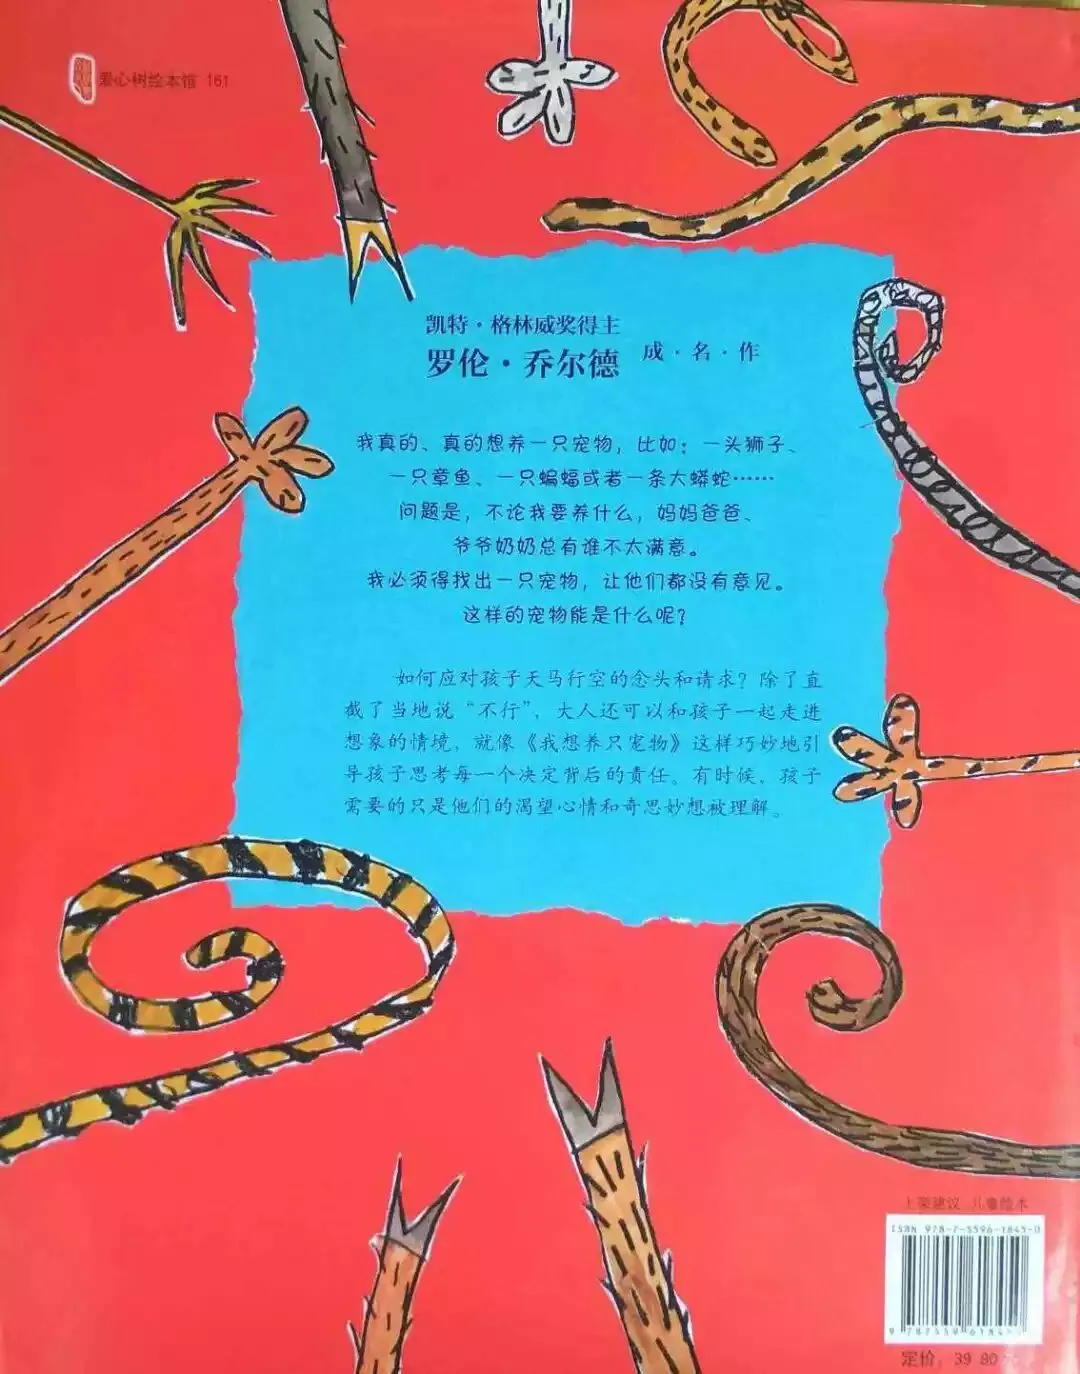 爱心树绘本馆 161
凯特·格林威奖得主
罗伦·乔尔德 成·名·作
我真的、真的想养一只宠物，比如：一头狮子、
一只章鱼、一只蝙蝠或者一条大蟒蛇……
问题是，不论我要养什么，妈妈爸爸、
爷爷奶奶总有谁不太满意。
我必须得找出一只宠物，让他们都没有意见。
这样的宠物能是什么呢？
如何应对孩子天马行空的念头和请求？除了直
截了当地说“不行”，大人还可以和孩子一起走进
想象的情境，就像《我想养只宠物》这样巧妙地引
导孩子思考每一个决定背后的责任。有时候，孩子
需要的只是他们的渴望心情和奇思妙想被理解。
上架建议 儿童绘本
ISBN 978-7-5596-1845-0
定价：39.80